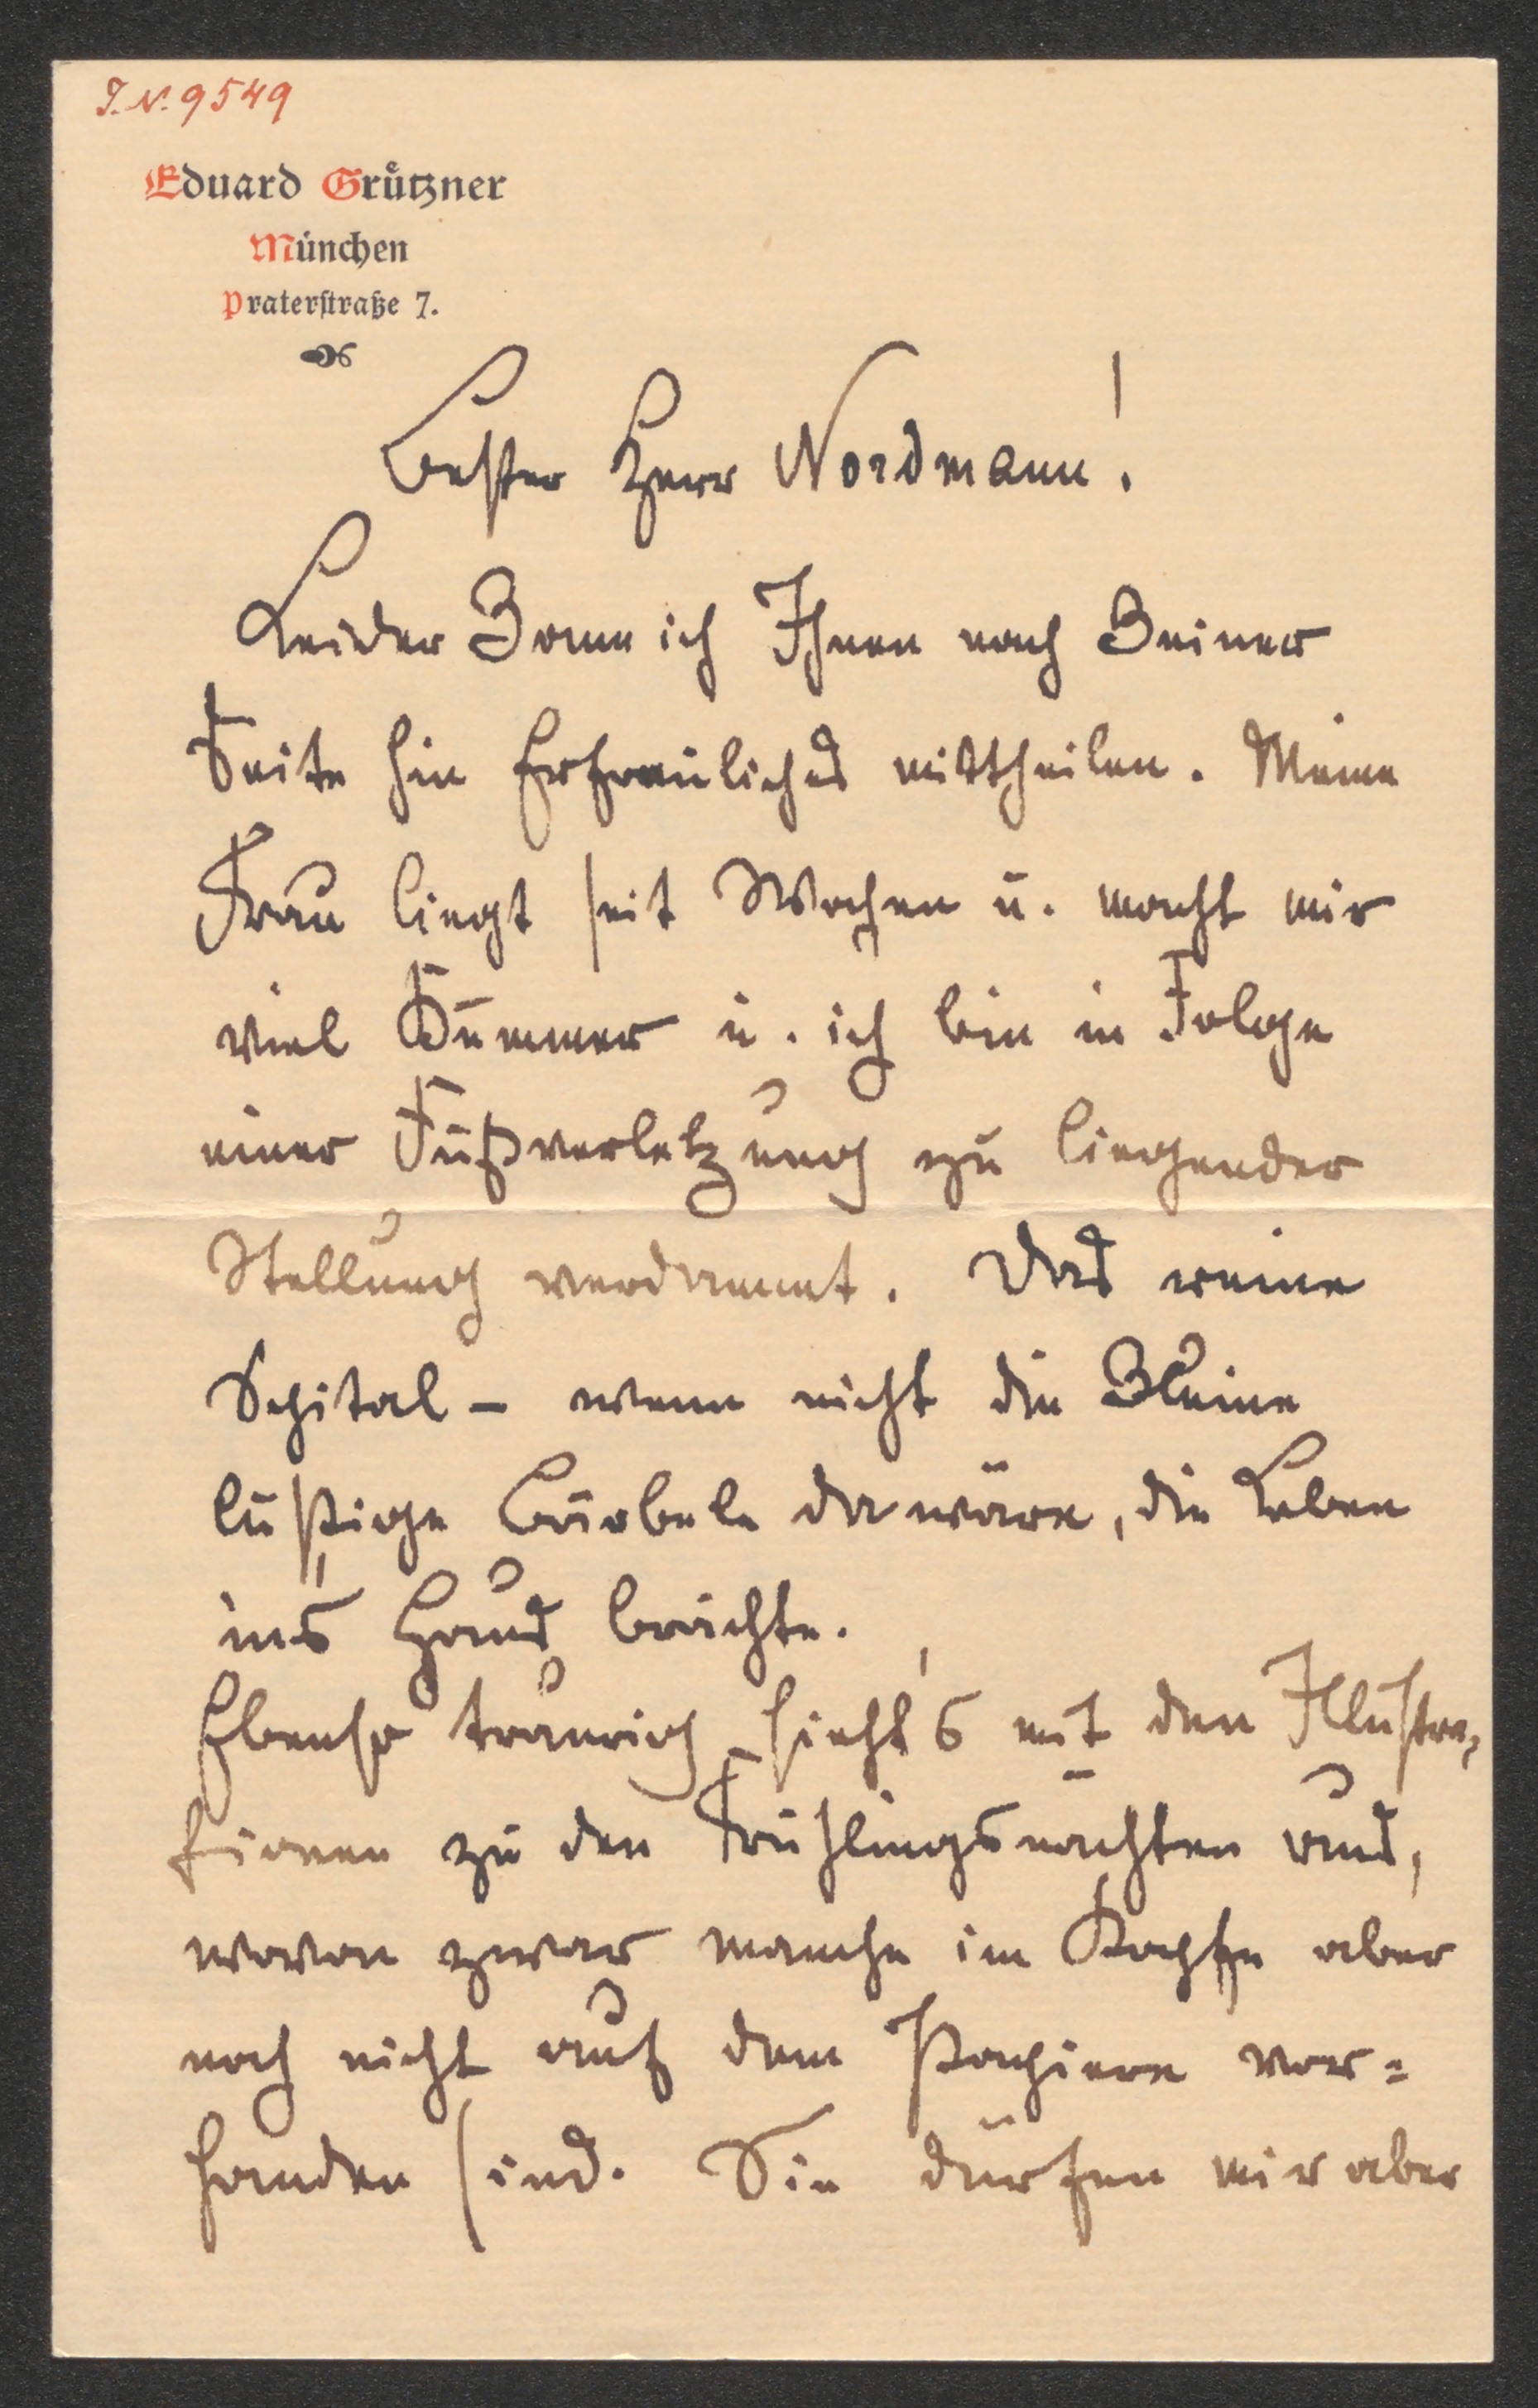 I.N. 9549
Eduard Grützner
München
Praterstraße 7.
Bester Herr Nordmann!
Leider kann ich Ihnen nach keiner
Seite hin Erfreuliches mittheilen. Meine
Frau liegt seit Wochen u. macht mir
viel Kummer u. ich bin in Folge
einer Fußverletzung zu liegender
Stellung verdammt. Das reine
Spital – wenn nicht die kleine
lustige Bärbele da wäre, die Leben
in's Haus brächte.
Ebenso traurig sieht's mit den Illustra-
tionen zu den Frühlingsnächten aus,
wovon zwar manche im Kopfe aber
noch nicht auf dem Papiere vor=
handen sind. Sie dürfen mir aber